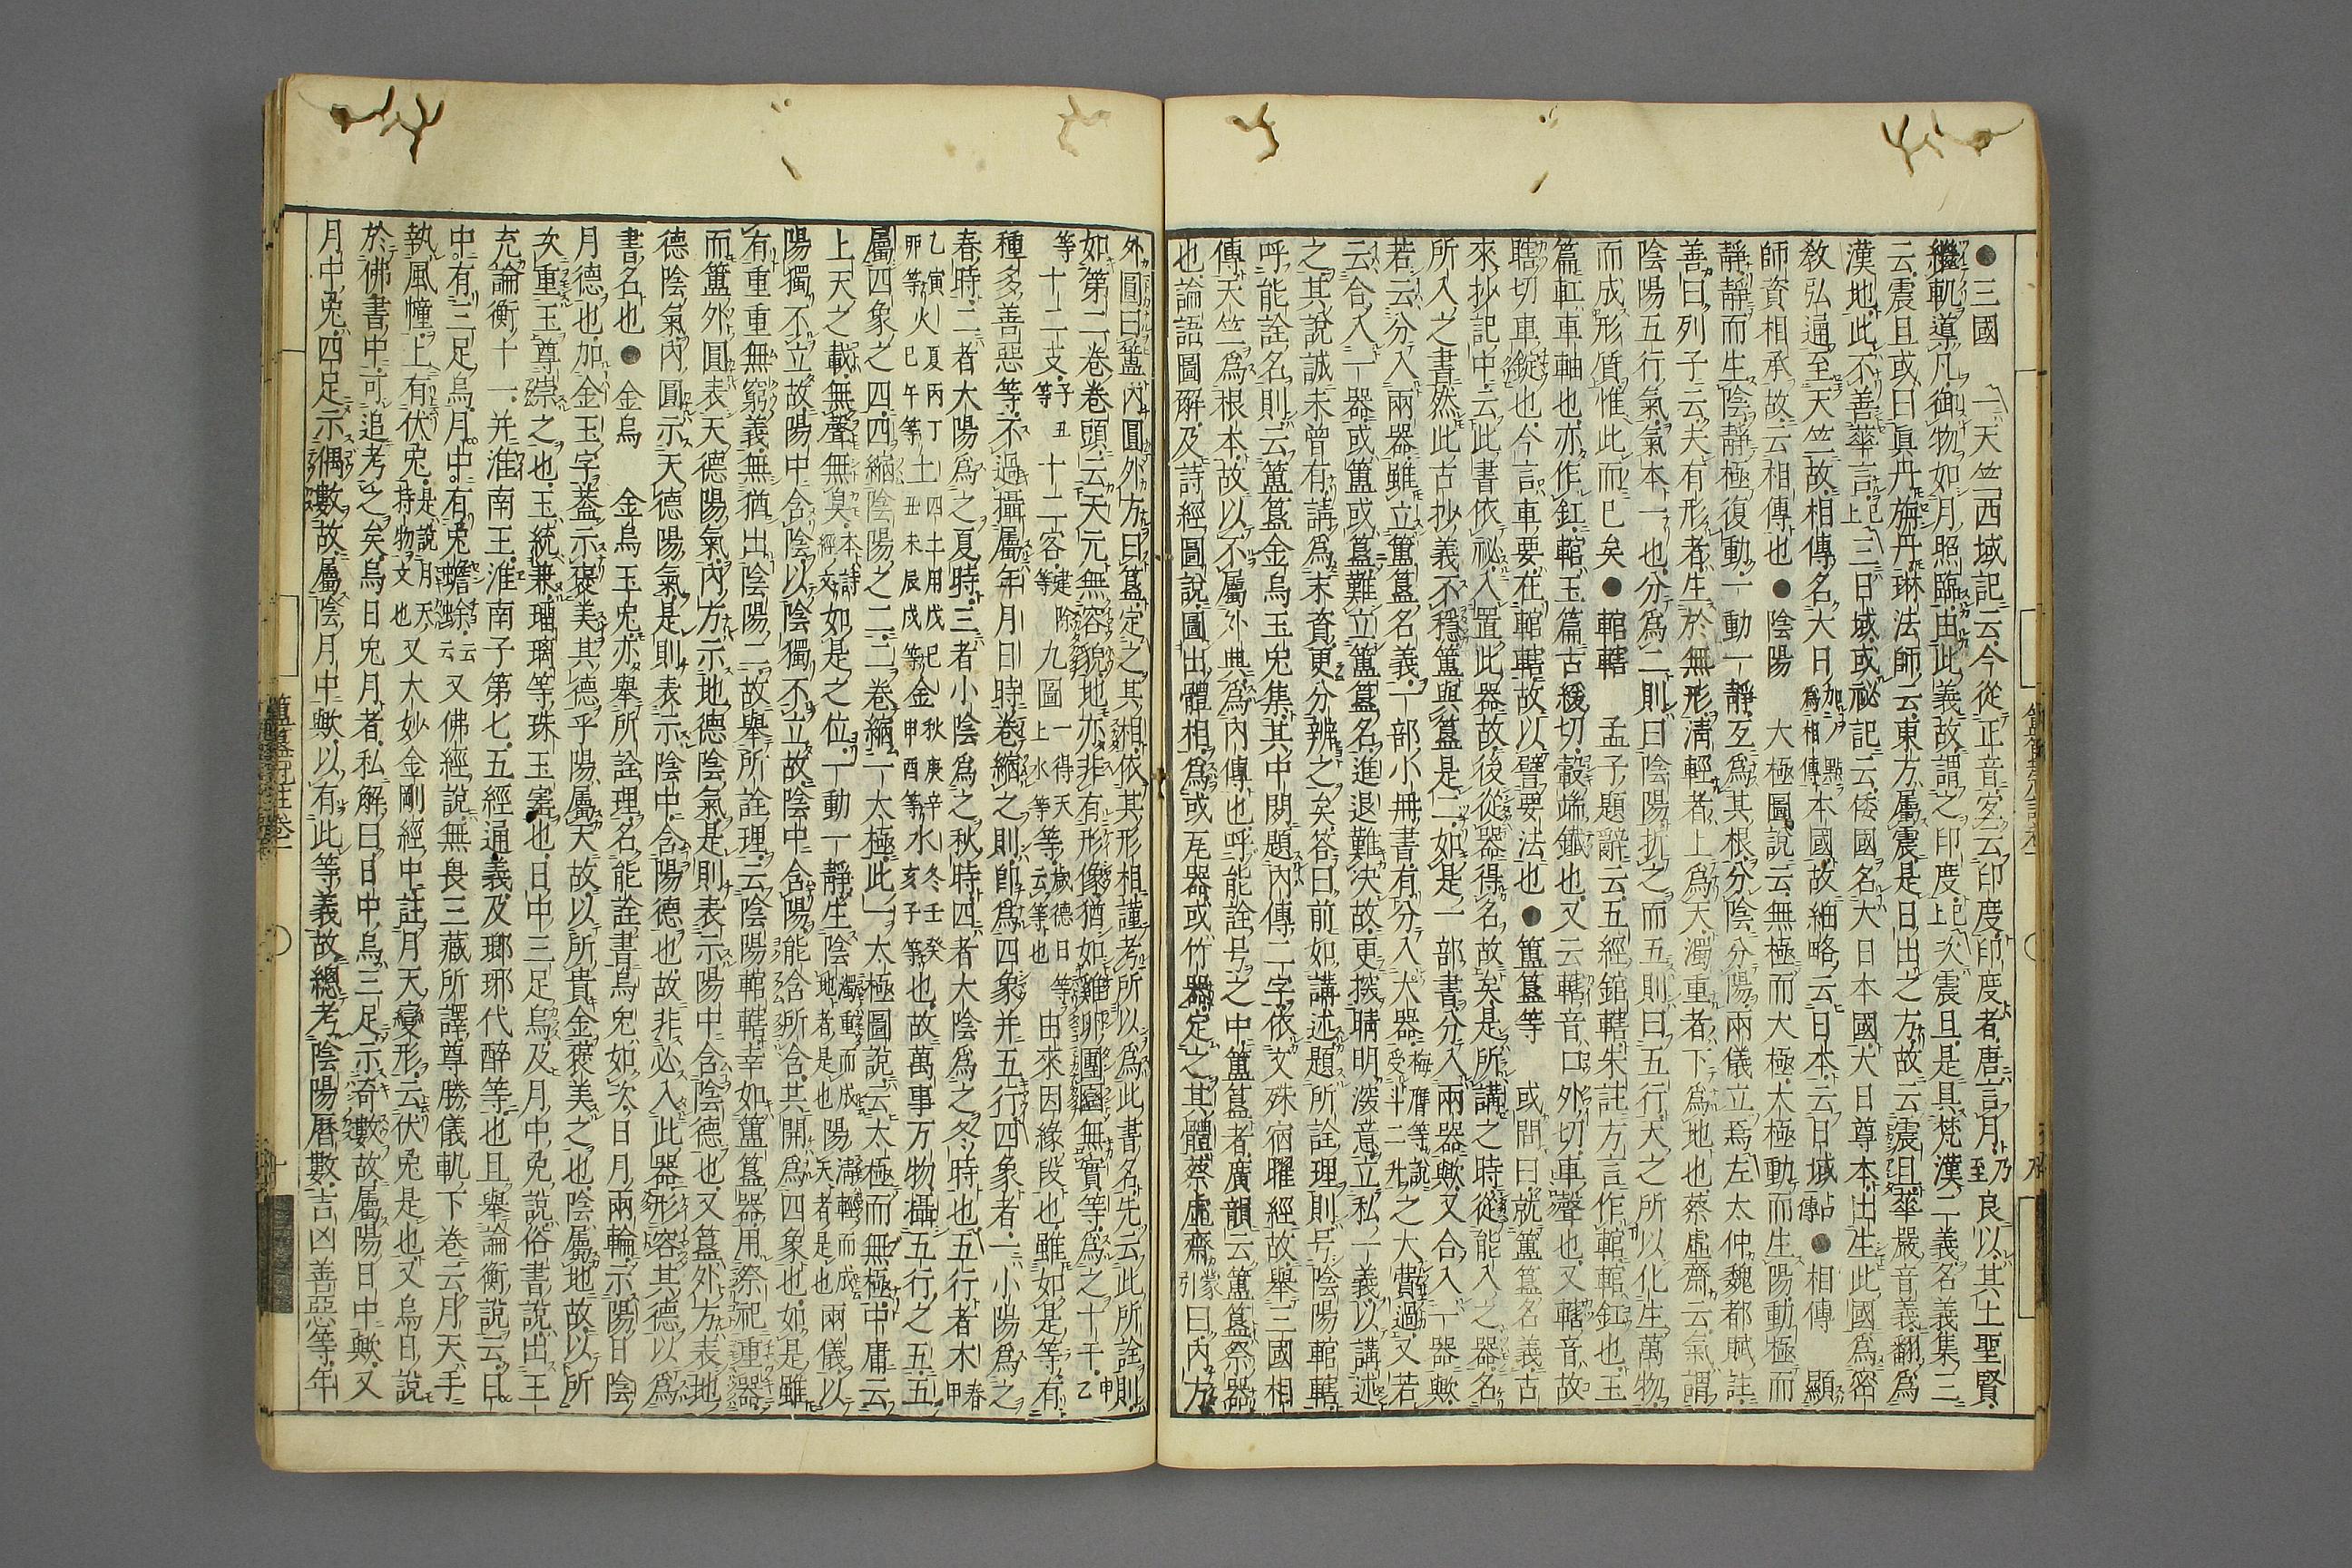 ●三國 一天竺西域記云今從正音宜云印度印度者唐言月乃至良以其土聖賢
繼軌導凡御物如月照臨由此義故謂之印度上已次震旦是具梵漢二義名義集三
云震旦或曰眞丹旃丹琳法師云東方屬震是日出之方故云震旦華嚴音義翻爲
漢地此不善華言上已三日域或祕記云倭國名大日本國大日尊本出生此國爲密
敎弘通至天竺故相傳名大日本國故細略云日本云日域 ●相傳 顯
師資相承故云相傳也●陰陽 大極圖說云無極而大極大極動而生陽動極而
靜靜而生陰靜極復動一動一靜互爲其根分陰分陽兩儀立焉左太仲魏都賦註
善曰列子云夫有形者生於無形淸輕者上爲天濁重者下爲地也蔡虛齋云氣謂
陰陽五行氣氣本一也分爲二則曰陰陽折之而五則曰五行天之所以化生萬物
而成形質惟此而已矣●輨轄 孟子題辭云五經錧轄朱註方言作輨輨釭也玉
篇釭車軸也亦作釭輨玉篇古緩切轂端鐵也又云轄音口外切車聲也又轄音故
瞎切車錠也今言車要在輨轄故以譬要法也●簠簋等 或問曰就簠簋名義古
來抄記中云此書依祕入置此器故後從器得名故矣是所講之時從能入之器名
所入之書然此古抄義不穩簠與簋是二如是一部書分入兩器歟又合入一器歟
若云分入兩器雖立簠簋名義一部小冊書有分入大器之大費過又若
云合入一器或簠或簋難立簠簋名進退難決故更撥睛明深意立私一義以講述
之其說誠未曾有請爲末資更分辨之矣答曰前如講述題所詮理則号陰陽輨轄
呼能詮名則云簠簋金烏玉兎集其中閉題內傳二字依文殊宿曜經故擧三國相
傳天竺爲根本故以不屬外典爲內傳也呼能詮号之中簠簋者廣韻云簠簋祭器
也論語圖解及詩經圖說圖出體相爲或瓦器或竹器定之其體蔡虛齋蒙引曰內方
外圓曰簠內圓外方曰簋定之其相依其形相謹考所以爲此書名先云此所詮則
如第二卷卷頭云天元無容貌地亦非有形像猶如雞卵團圞無實等爲之十干甲乙
等十二支子丑等十二客建除等九圖一得天上水等等歲德日等云等也由來因緣段也雖如是等有
種多善惡等不過攝屬年月日時卷縮之則帥爲四象并五行四象者一小陽爲之
春時二者大陽爲之夏時三者小陰爲之秋時四者大陰爲之冬時也五行者木春甲
乙寅卯等火夏丙丁巳午等土四土用戊己丑未辰戌等金秋庚辛申酉等水冬壬癸亥子等也故萬事万物攝五行之五五
屬四象之四四縮陰陽之二二卷縮一太極此一太極圖說云太極而無極中庸云
上天之載無聲無臭本詩經文如是之位一動一靜生陰濁重而成地者是也陽淸輕而成天者是也兩儀以
陽獨不立故陽中含陰以陰獨不立故陰中含陽能含所含其開爲四象也如是雖
有重重無窮義無猶出陰陽二故擧所詮理云陰陽輨轄幸如簠簋器用祭祀重器
而簠外圓表天德陽氣內方示地德陰氣是則表示陽中含陰德也又簋外方表地
德陰氣內圓示天德陽氣是則表示陰中含陽德也故非必入此器形容其德以爲
書名也●金烏 金烏玉兎亦擧所詮理名能詮書烏兎如次日月兩輪示陽日陰
月德也加金玉字蓋示褒美其德乎陽屬天故以所貴金褒美之也陰屬地故以所
次重玉尊崇之也玉統兼瑠璃等珠玉害也日中三足烏及月中兎說俗書說出王
充論衡十一并淮南王淮南子第七五經通義及瑯琊代醉等也且擧論衡說云日
中有三足烏月中有兎蟾蜍云云又佛經說無畏三藏所譯尊勝儀軌下卷云月天手
執風幢上有伏兎是說月天持物文也又大妙金剛經中註月天變形云伏兎是也又烏日說
於佛書中可追考之矣烏日兎月者私解曰日中烏三足示奇數故屬陽日中歟又
月中兎四足示偶數故屬陰月中歟以有此等義故總考陰陽曆數吉凶善惡等年